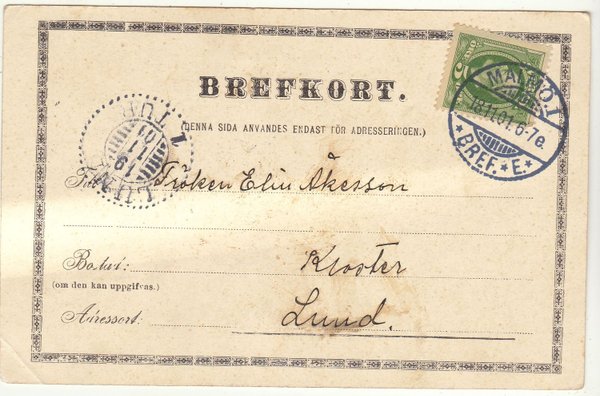 BREFKORT.
(DENNA SIDA ANVANDES ENDAST FÖR ADRESSERINGEN.)
MALMÖ.1
18.11.01.6-7e.
★BREF.★E.★
LUND
1 TUR
19
11
01
Till Fröken Elin Åkesson
Bostad: Kloster
(om den kan uppgifvas.)
Adressort: Lund.